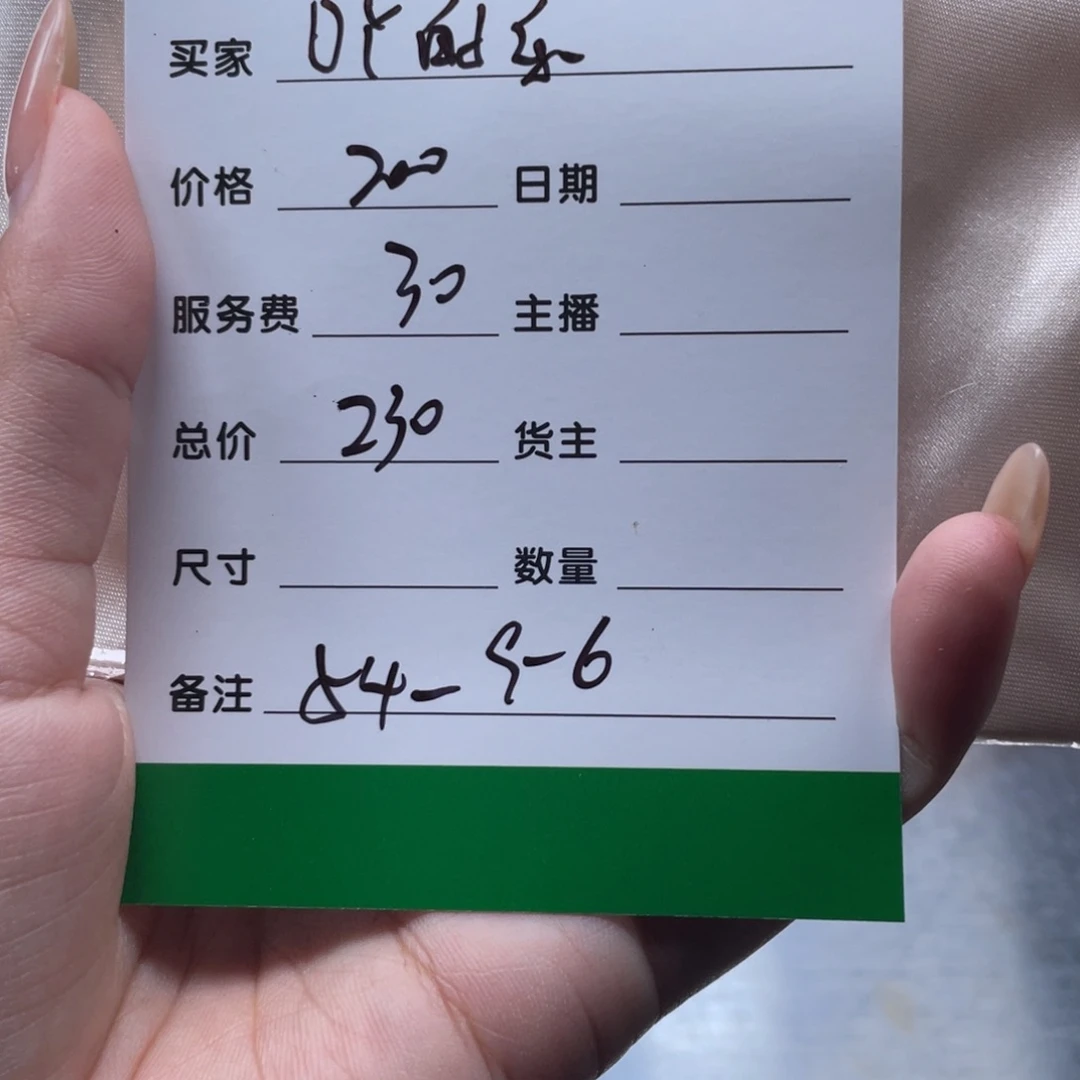 买家 的乐
价格 200 日期
服务费 30 主播
总价 230 货主
尺寸 数量
备注 54- 9-6